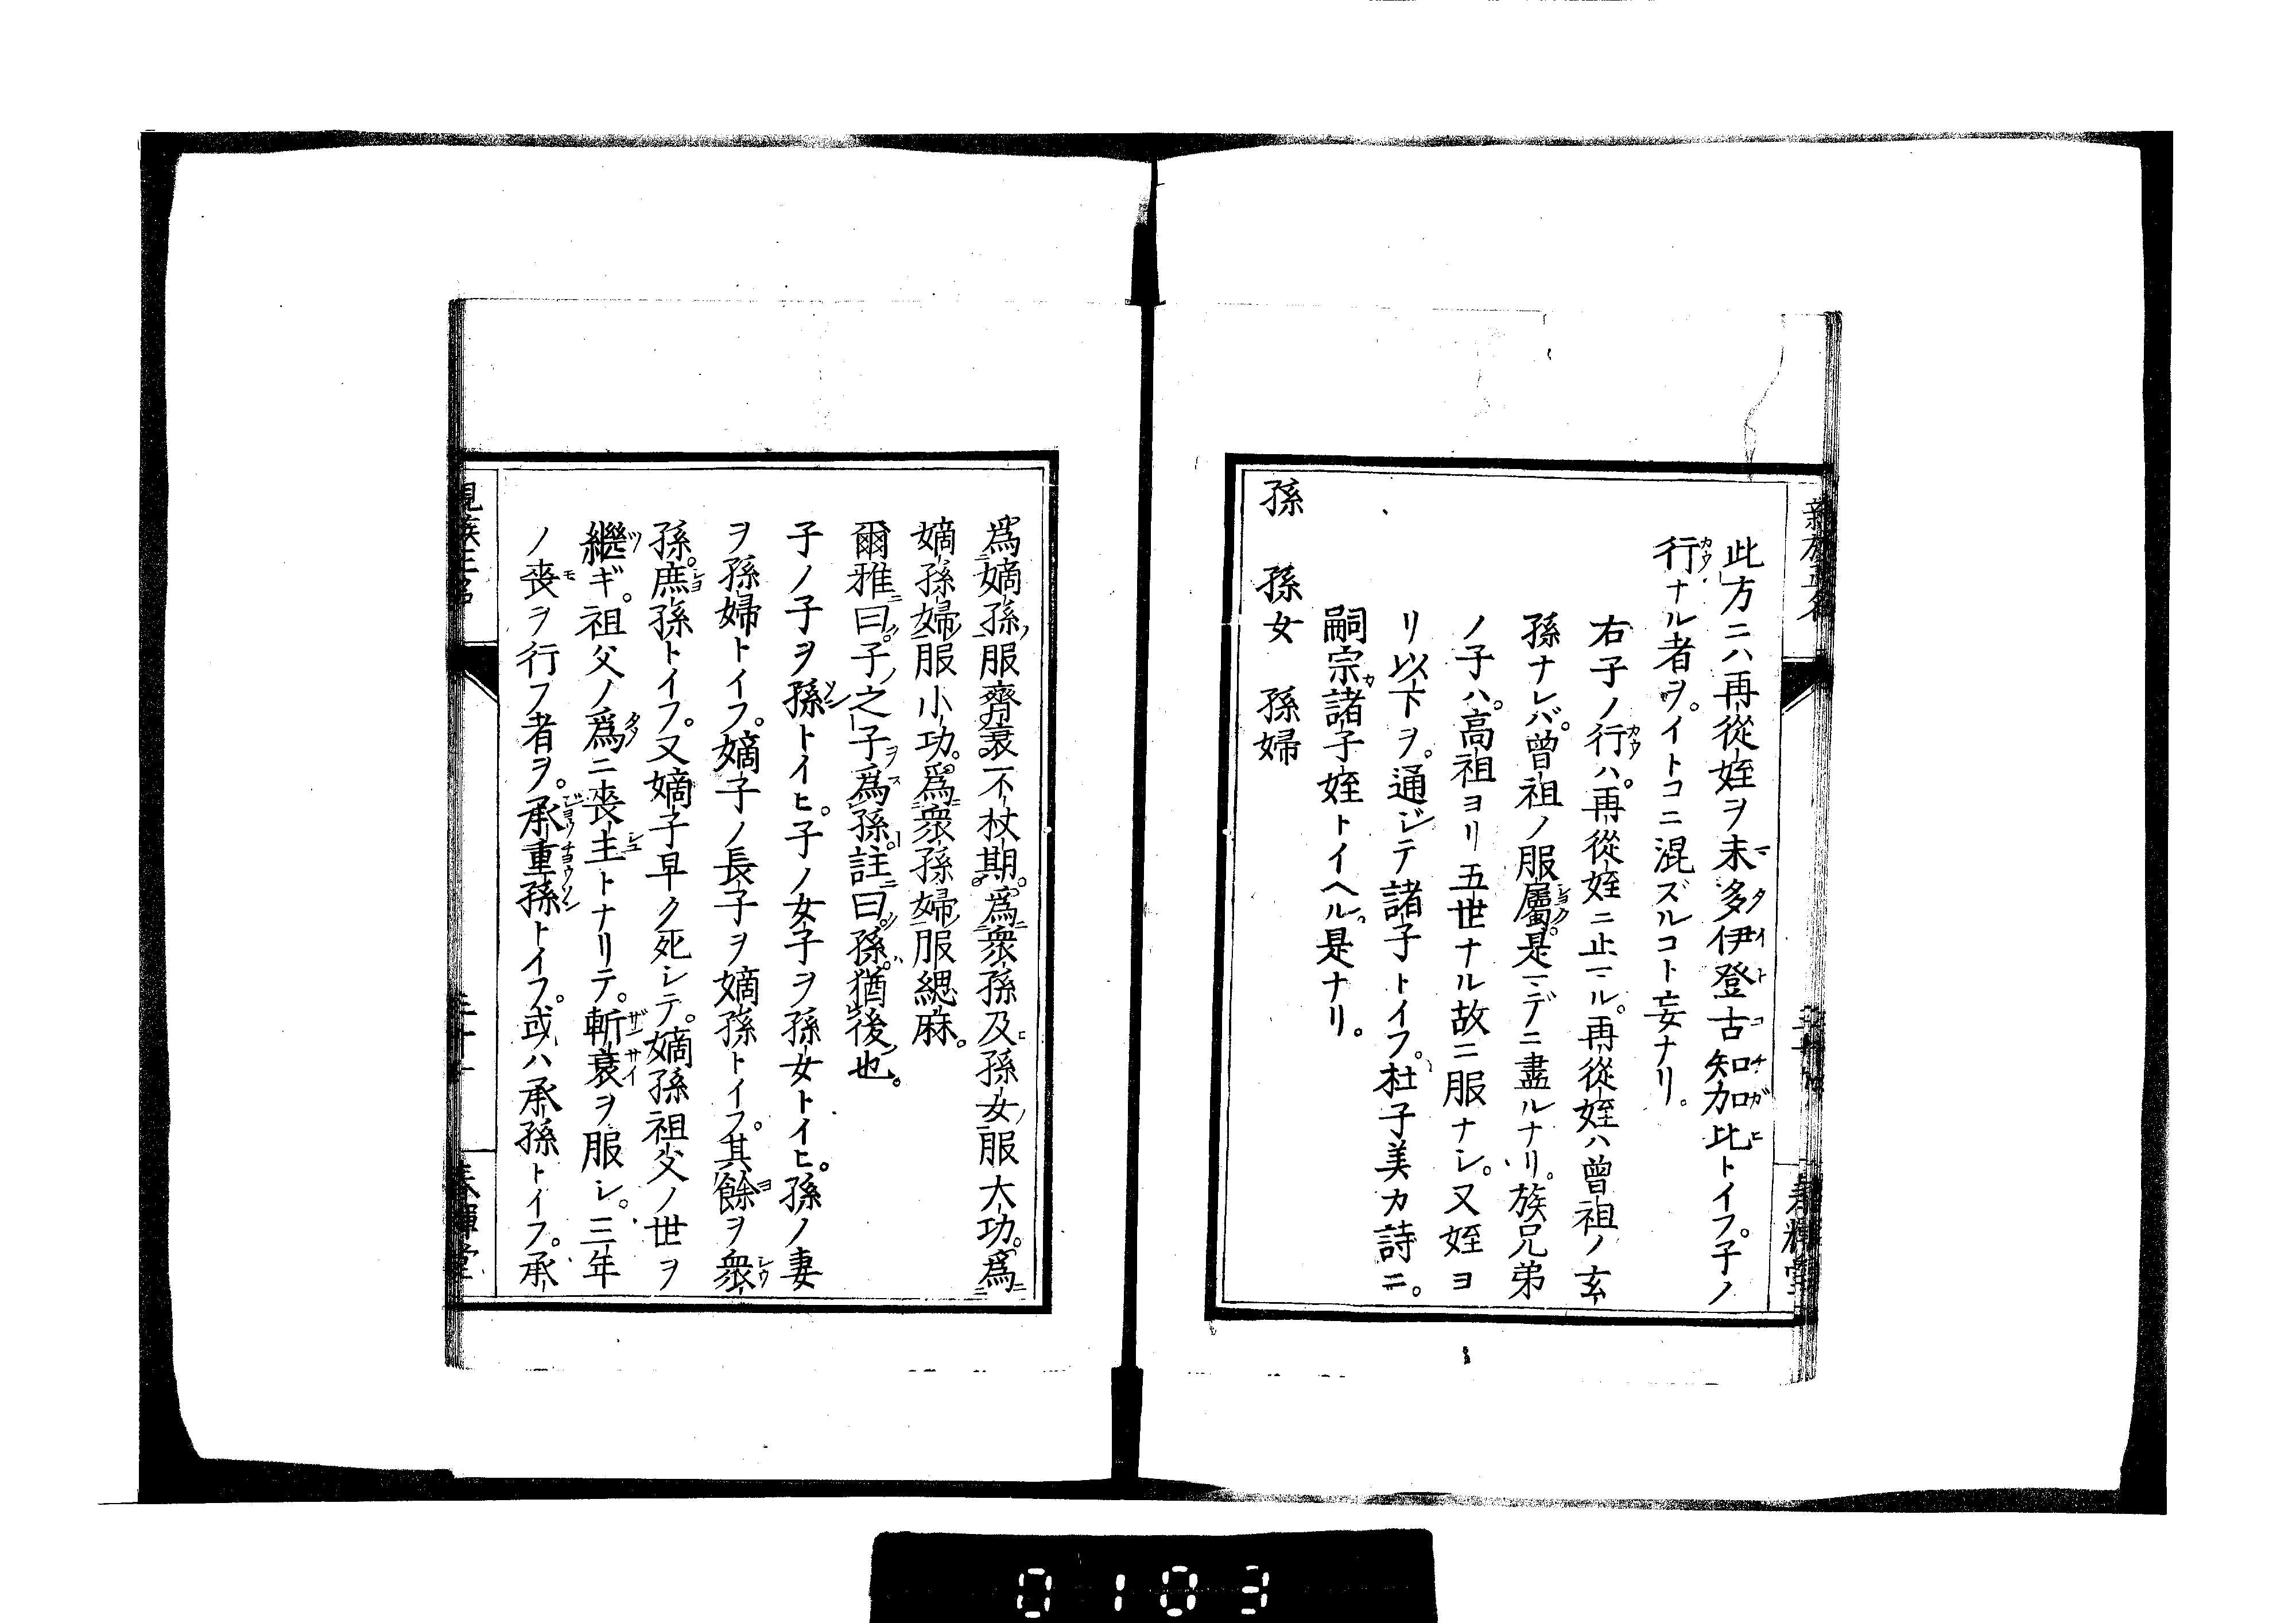 此方ニハ再從姪ヲ未多伊登古知加比トイフ。子ノ
行ナル者ヲ。イトコニ混ズルコト妄ナリ。
右子ノ行ハ。再從姪ニ止マル。再從姪ハ曾祖ノ玄
孫ナレバ。曾祖ノ服屬是マデニ盡ルナリ。族兄弟
ノ子ハ。高祖ヨリ五世ナル故ニ服ナシ。又姪ヨ
リ以下ヲ。通ジテ諸子トイフ。杜子美カ詩ニ。
嗣宗諸子姪トイヘル。是ナリ。
孫 孫女 孫婦
爲嫡孫服齊衰不杖期。爲衆孫及孫女服大功。爲
嫡孫婦服小功。爲衆孫婦服緦麻。
爾雅曰。子之子爲孫。註曰。孫。猶後也。
子ノ子ヲ孫トイヒ。子ノ女子ヲ孫女トイヒ。孫ノ妻
ヲ孫婦トイフ。嫡子ノ長子ヲ嫡孫トイフ。其餘ヲ衆
孫。庶孫トイフ。又嫡子早ク死シテ。嫡孫祖父ノ世ヲ
繼ギ。祖父ノ爲ニ喪主トナリテ。斬衰ヲ服シ。三年
ノ喪ヲ行フ者ヲ。承重孫トイフ。或ハ承孫トイフ。承
親族正名
春輝堂
0103